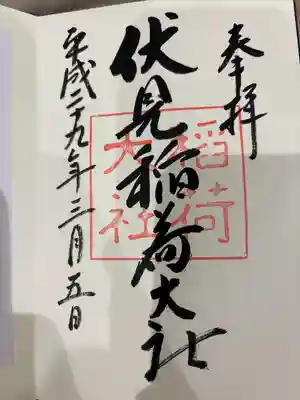 奉拝
伏見稲荷大社
稲荷
大社
平成二十九年三月五日